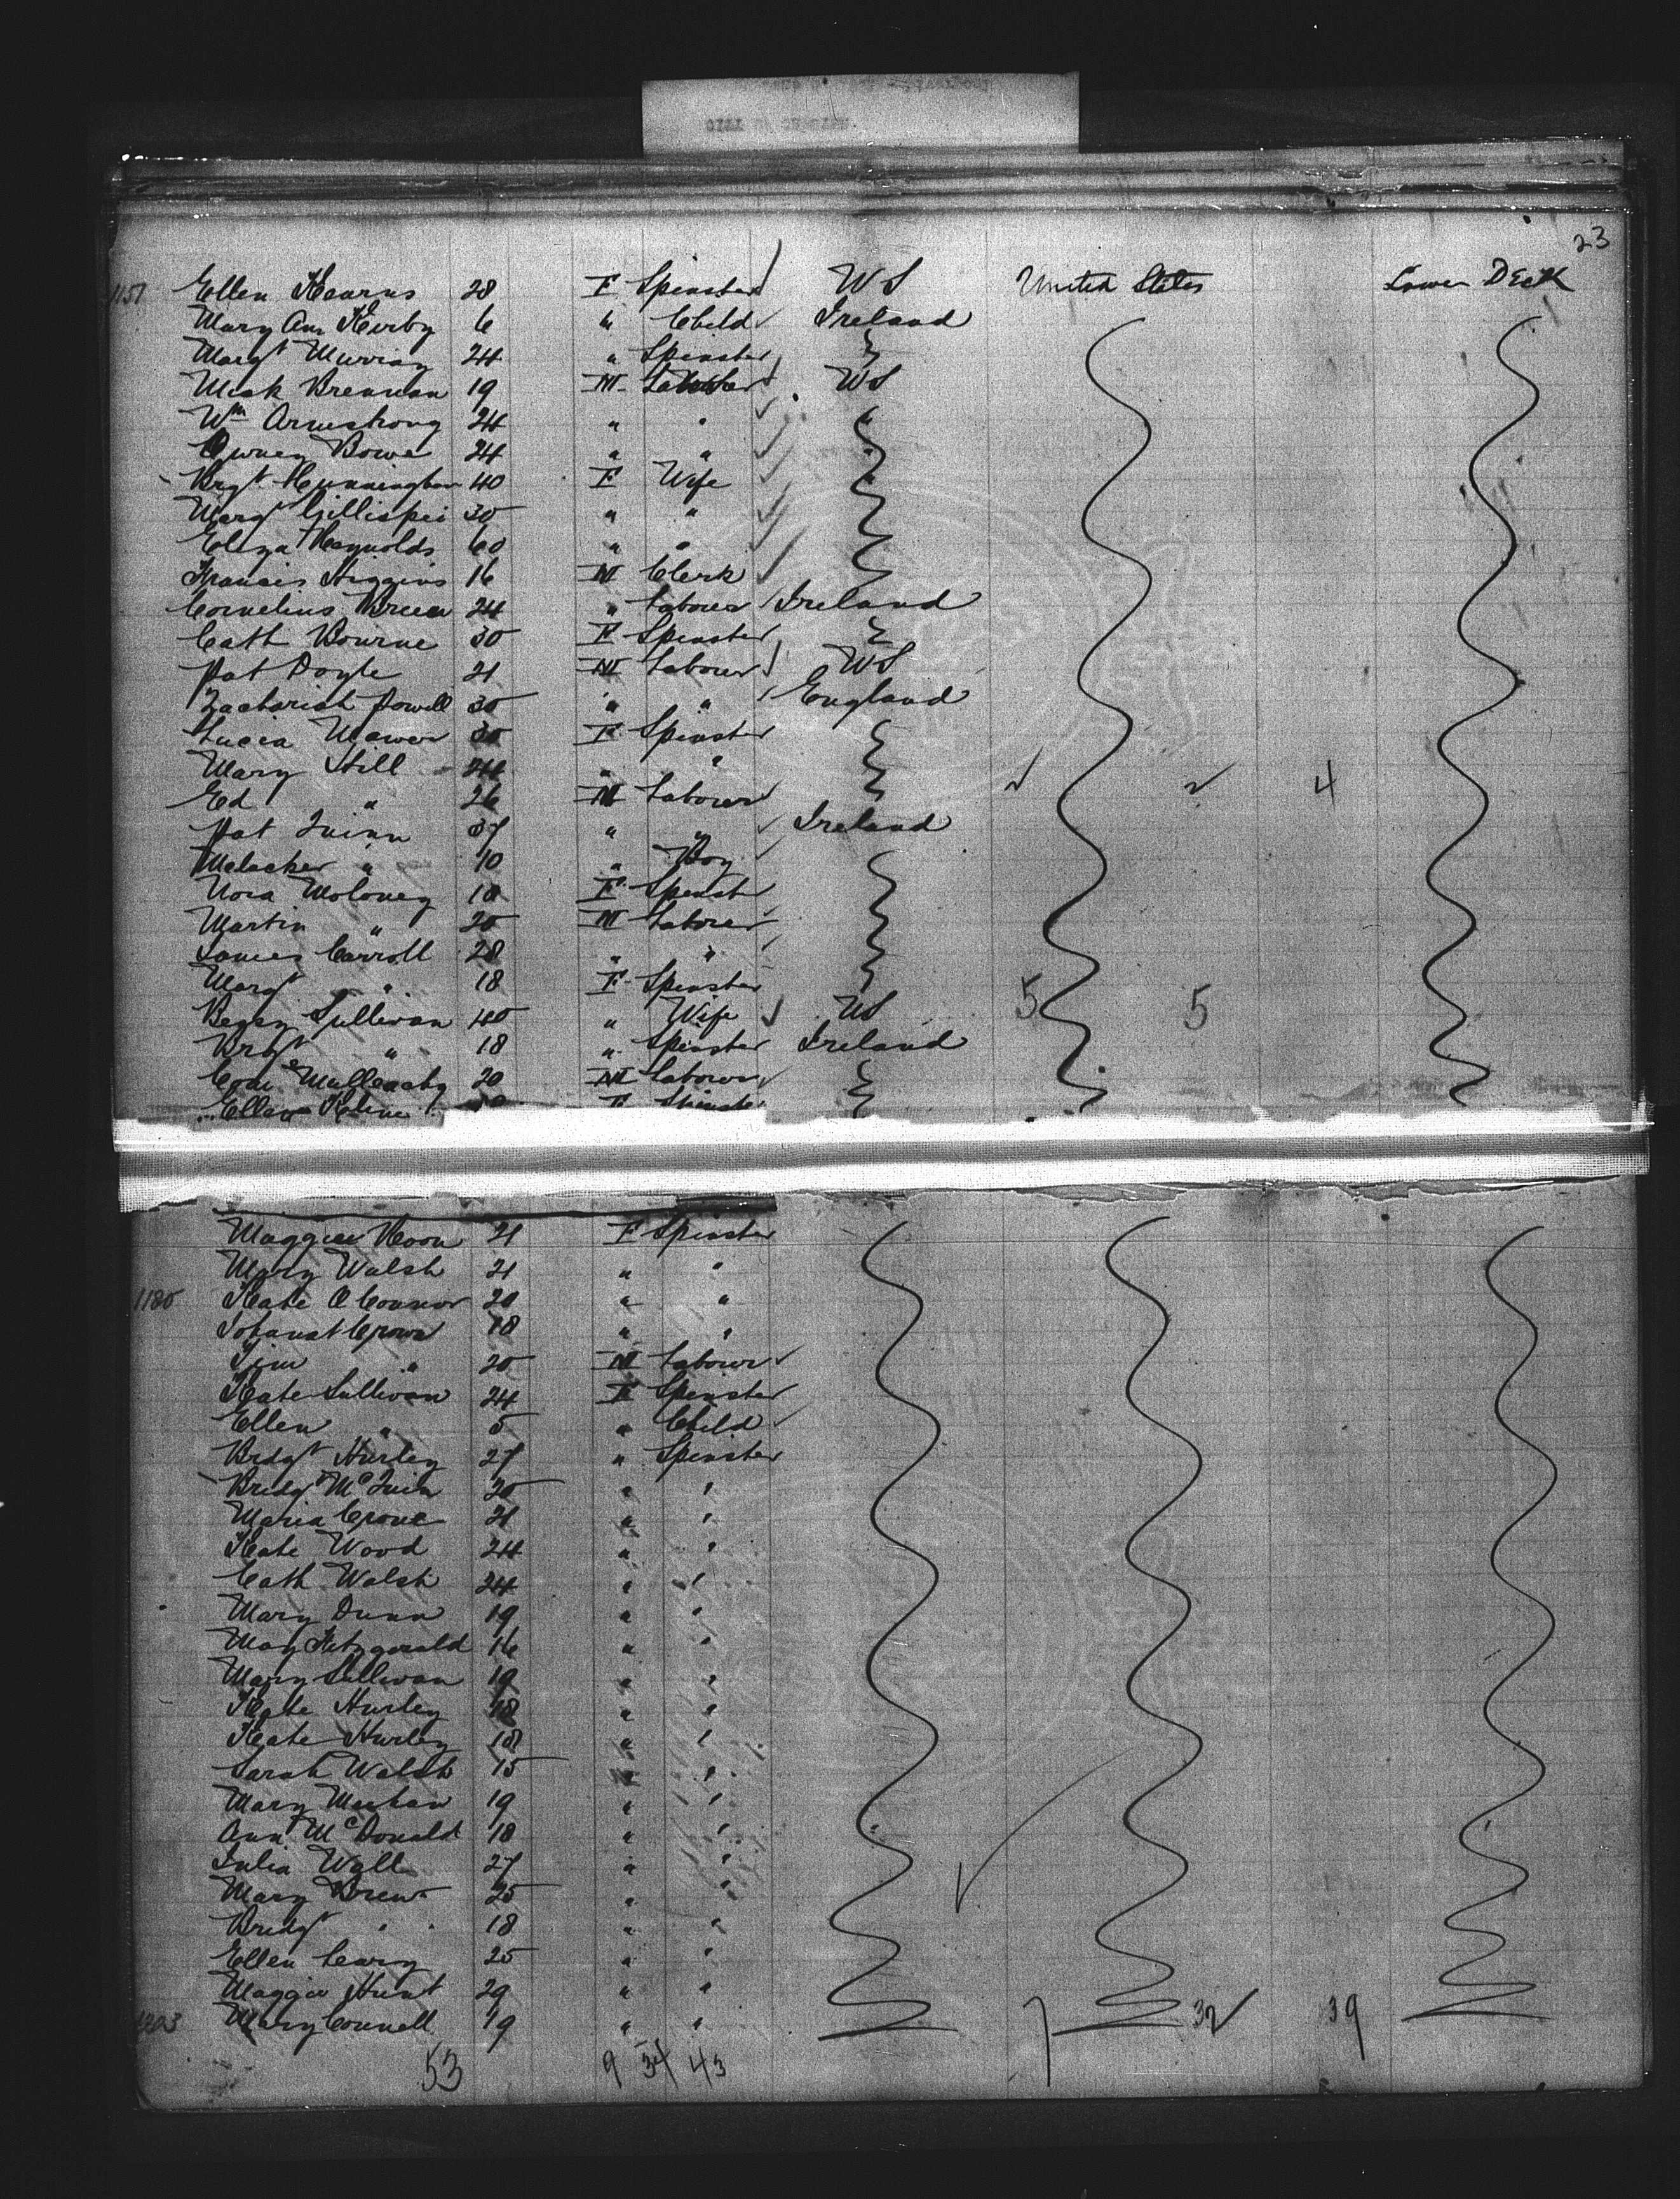 23
1151 Ellen Kearns 28 F Spinster US United States Lower Deck
Mary Ann Kirby 6 " Child Ireland
Margt Murray 24 " Spinster
Mick Brennan 19 M Labourer US
Wm Armstrong 24 " " "
Bowe 24 " "
Brgt Cunningham 40 F Wife
Margt Gillispei 30 " "
Eliza Reynolds 60 " "
Francis Higgins 16 M Clerk
Cornelius Breen 24 " Labourer Ireland
Cath Bourne 30 F Spinster
Pat Doyle 21 M Labourer US
Zachariah Powell 30 " " England
Lucia Mawer 30 F Spinster
Mary Hill 24 " "
Ed " 26 M Labourer 4
Pat Quinn 37 " " Ireland
" 10 " Boy
Nora Moloney 18 F Spinster
Martin " 20 M Labourer
James Carroll 28 " "
Margt " 18 F Spinster
Sullivan 40 " Wife US 5 5
Brgt " 18 " Spinster Ireland
20 M Labourer
Ellen F Spinster
Maggie 21 F Spinster
Mary Walsh 21 " "
1180 Kate O Connor 20 " "
18 " "
Tim " 20 M Labourer
Kate Sullivan 24 F Spinster
Ellen " 5 " Child
Brdgt Hurley 27 " Spinster
Bridgt McQuin 20 " "
Maria Crowe 21 " "
Kate Wood 24 " "
Cath Walsh 24 " "
Mary Dunn 19 " "
May Fitzgerald 16 " "
Mary Sullivan 19 " "
Kate Hurley 18 " "
Kate Hurley 18 " "
Sarah Walsh 15 " "
Mary Meehan 19 " "
Ann McDonald 18 " "
Julia Wall 27 " "
Mary Brew 25 " "
Bridgt " 18 " "
Ellen 25 " "
Maggie Hunt 29 " "
Mary Connell 19 " " 7 32 39
53 9 34 43